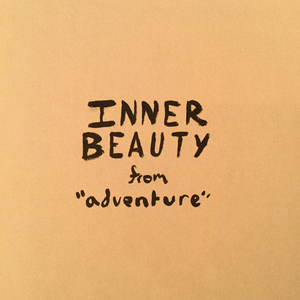 INNER
BEAUTY
from
"adventure"